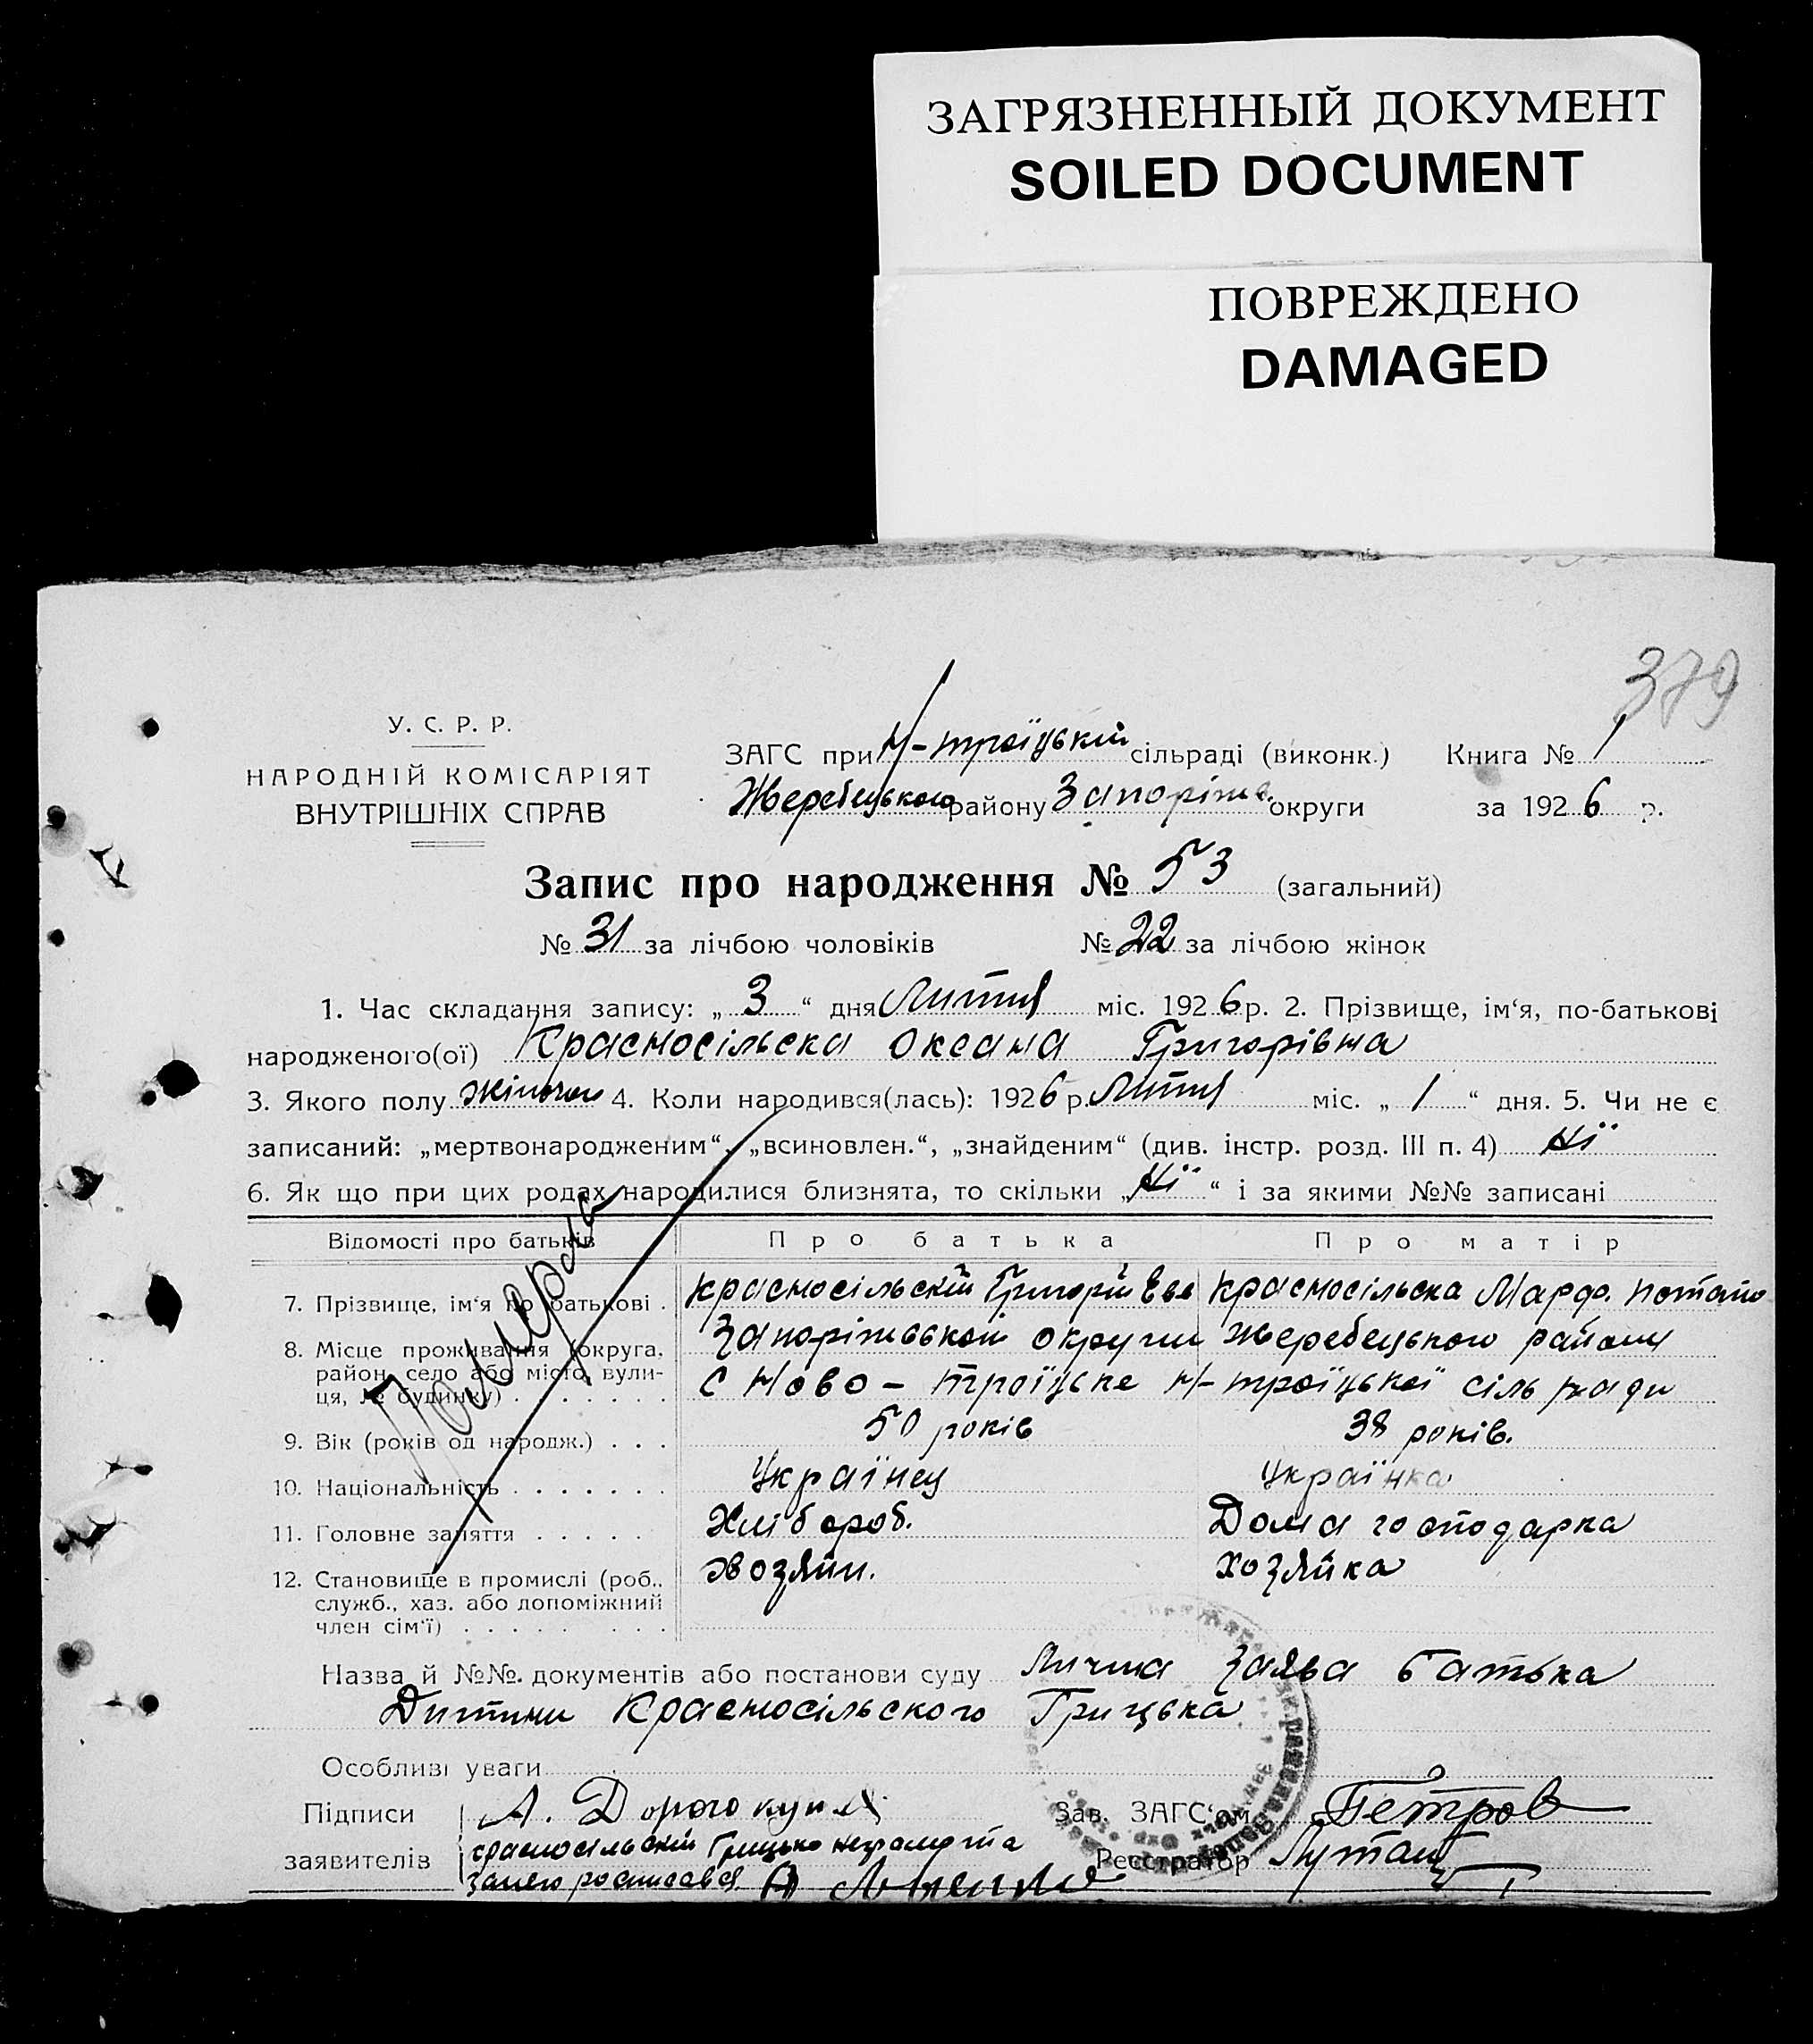 ЗАГРЯЗНЕННЫЙ ДОКУМЕНТ
SOILED DOCUMENT
ПОВРЕЖДЕНО
DAMAGED
379
У. С. Р. Р.
НАРОДНІЙ КОМІСАРІЯТ
ВНУТРІШНІХ СПРАВ
ЗАГС при Н-троїцькій сільраді (виконк.) Книга № 1
Жеребецького району Запоріж. округи за 1926 р.
Запис про народження № 53 (загальний)
№ 31 за лічбою чоловіків № 22 за лічбою жінок
1. Час складання запису: „ 3 “ дня Литня міс. 1926 р. 2. Прізвище, ім‘я, по-батькові
народженого(ої) Красносільска Оксана Григорівна
3. Якого полу жіночог 4. Коли народився(лась): 1926 р. Литня міс. „ 1 “ дня. 5. Чи не є
записаний: „мертвонародженим“, „всиновлен.“, „знайденим“ (див. інстр. розд. III п. 4) Ні
6. Як що при цих родах народилися близнята, то скільки „ Ні “ і за якими №№ записані
Відомості про батьків Про батька Про матір
7. Прізвище, ім‘я по батькові . Красносільскій Григорій Евс Красносільска Марф. Потапо
8. Місце проживання (округа, район, село або місто, вули-ця, № будинку) Запоріжської округи Жеребецького району
С Ново-троїцьке Н-троїцької сіль ради
9. Вік (років од народж.) . . . 50 років 38 років.
10. Національність . . . . . . . Українец Українка
11. Головне заняття . . . . . Хлібороб. Дома господарка
12. Становище в промислі (роб., служб., хаз. або допоміжний член сім‘ї) хвозяїн. хозяйка
Померла
Назва й №№. документів або постанови суду Лична заява батька
Дитини Красносільского Грицька
Особливі уваги
Підписи А. Дорогокупля Зав. ЗАГС‘ом Петров
заявителів Красносільскій Грицько неграмотна Реєстратор
занего росписався А